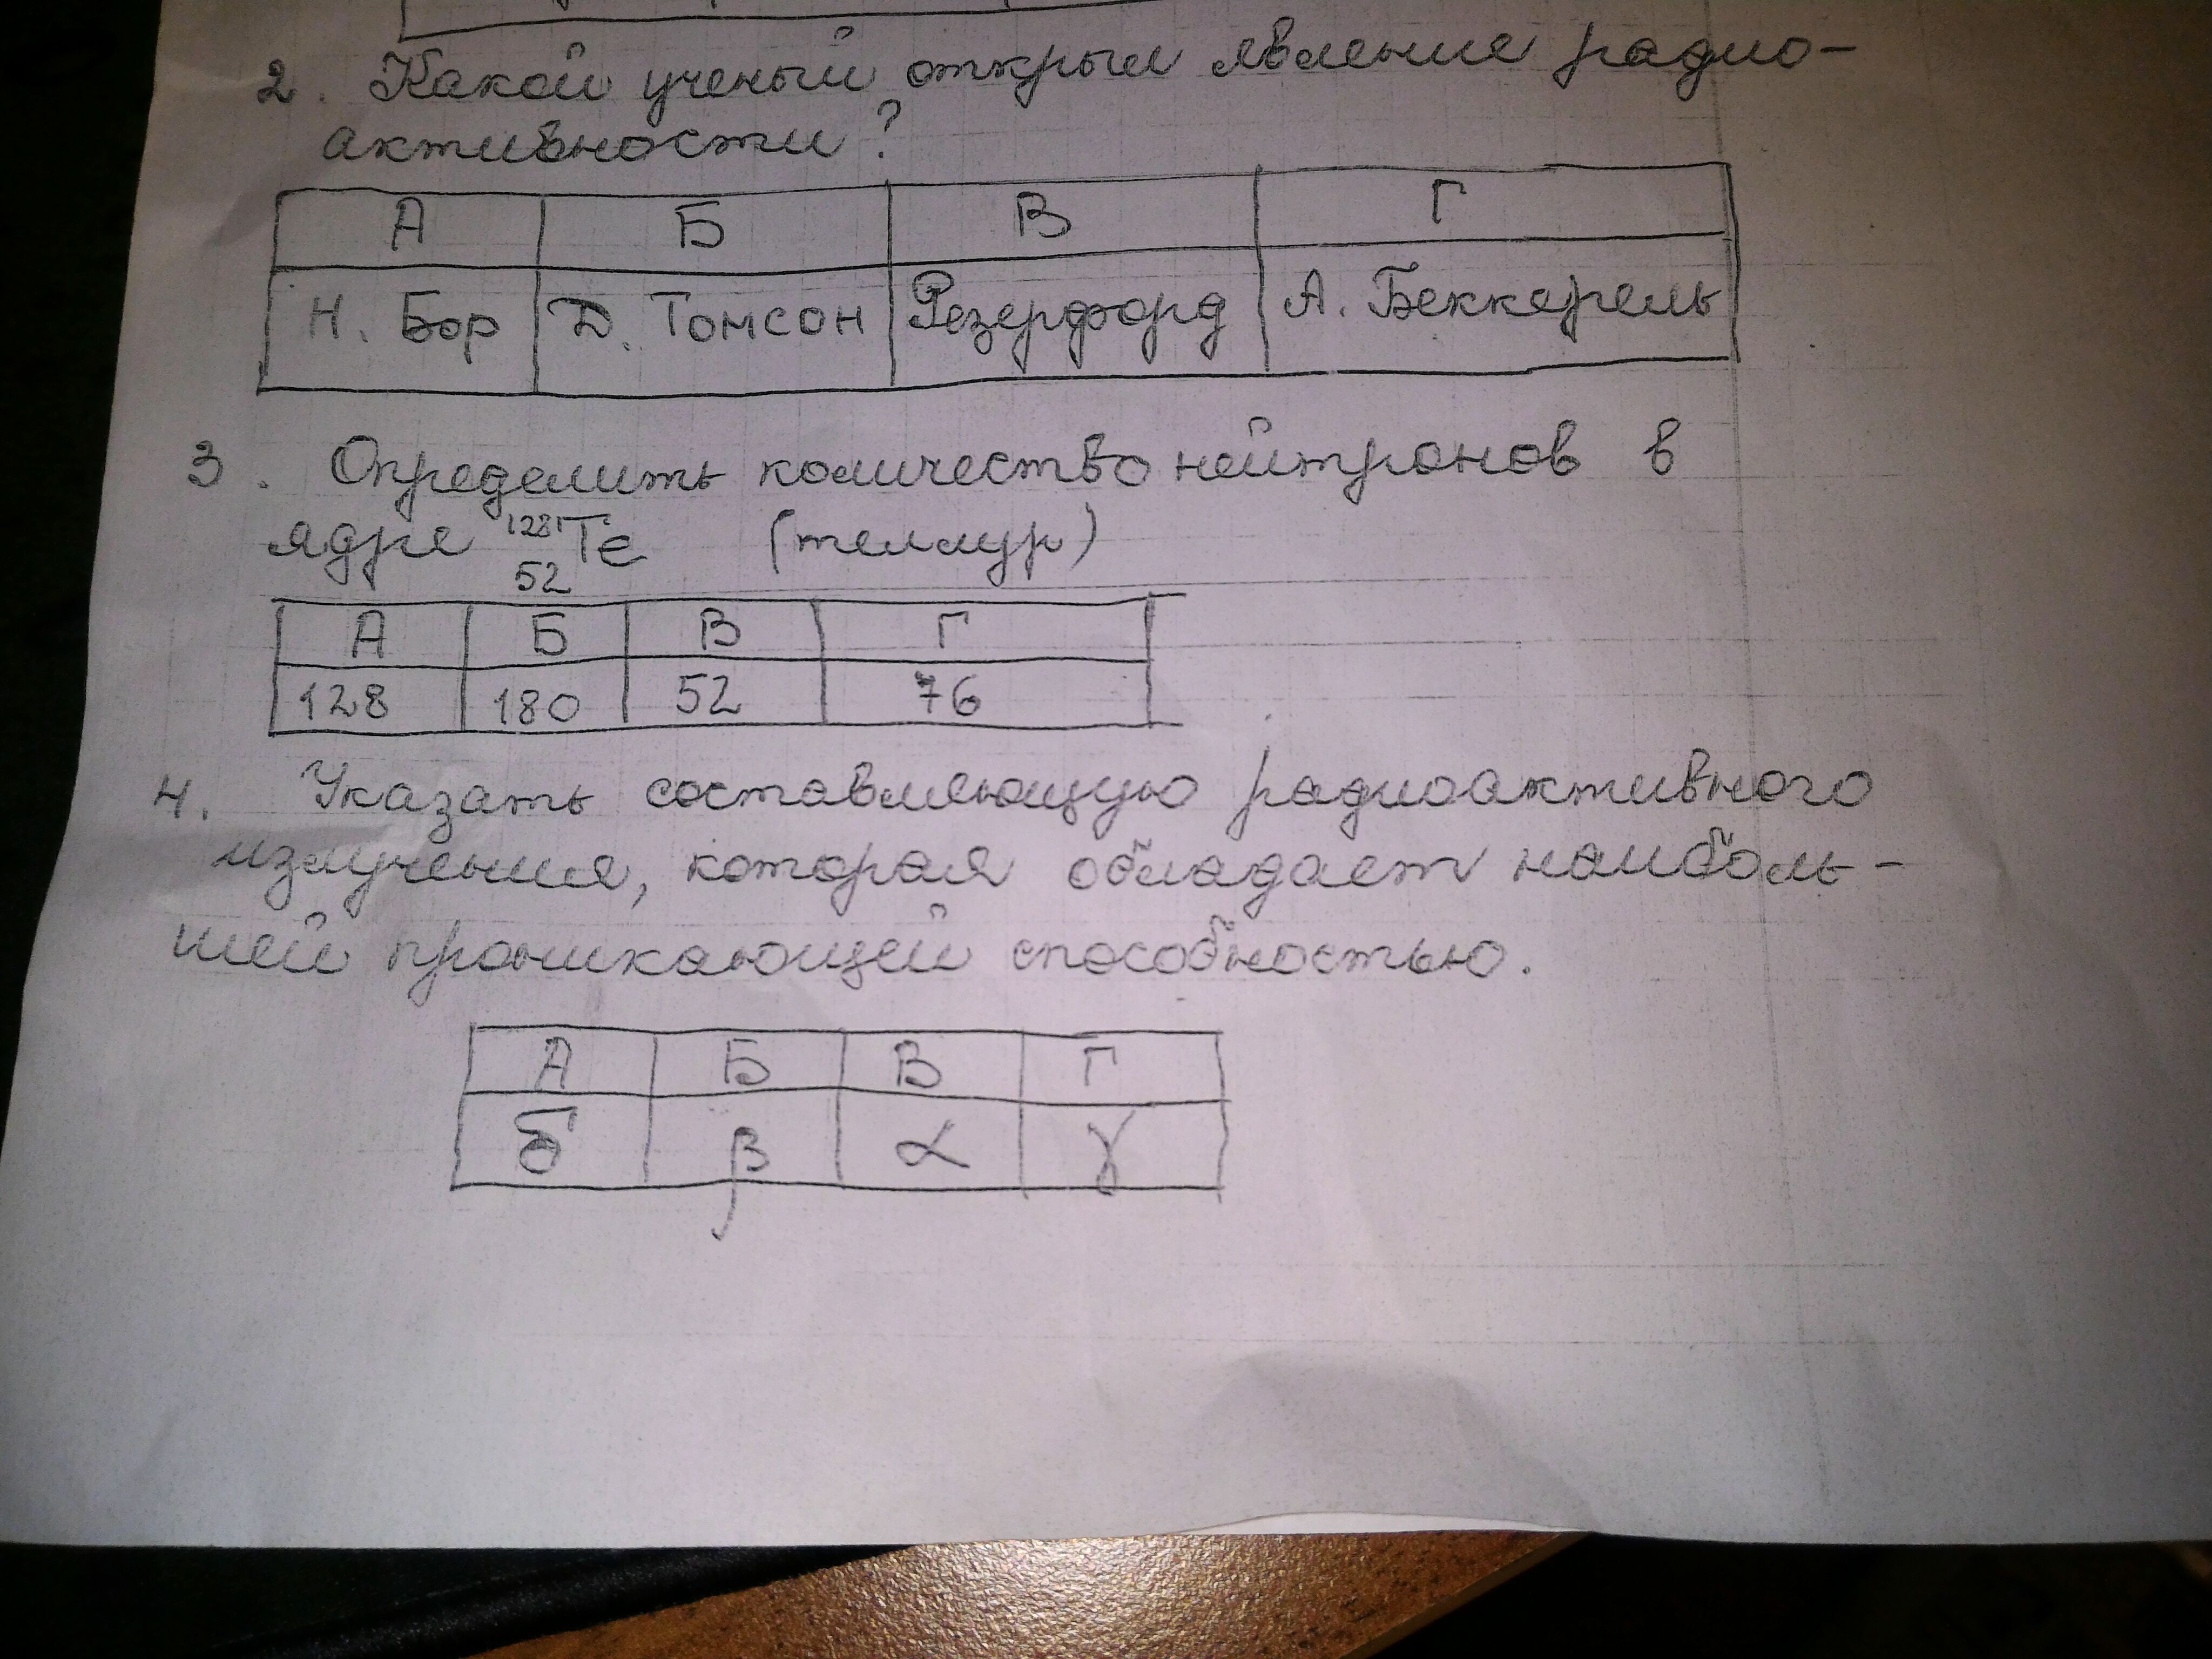 2. Какой ученый открыл явление радио-
активности?
А Б В Г
Н. Бор Д. Томсон Резерфорд А. Беккерель
3. Определить количество нейтронов в
ядре ¹²⁸₅₂Te (теллур)
А Б В Г
128 180 52 76
4. Указать составляющую радиоактивного
излучения, которая обладает наиболь-
шей проникающей способностью.
А Б В Г
δ β α γ